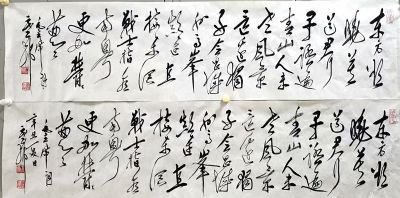 东方欲
晓莫
道君行
早踏遍
青山人未
老风景
这边独
好会昌城
外高峰
颠连直
接东溟
战士指看
南粤
更加郁
郁葱葱
毛主席词
东方欲
晓莫
道君行
早踏遍
青山人未
老风景
这边独
好会昌城
外高峰
颠连直
接东溟
战士指看
南粤
更加郁
郁葱葱
毛主席词
辛丑夏日